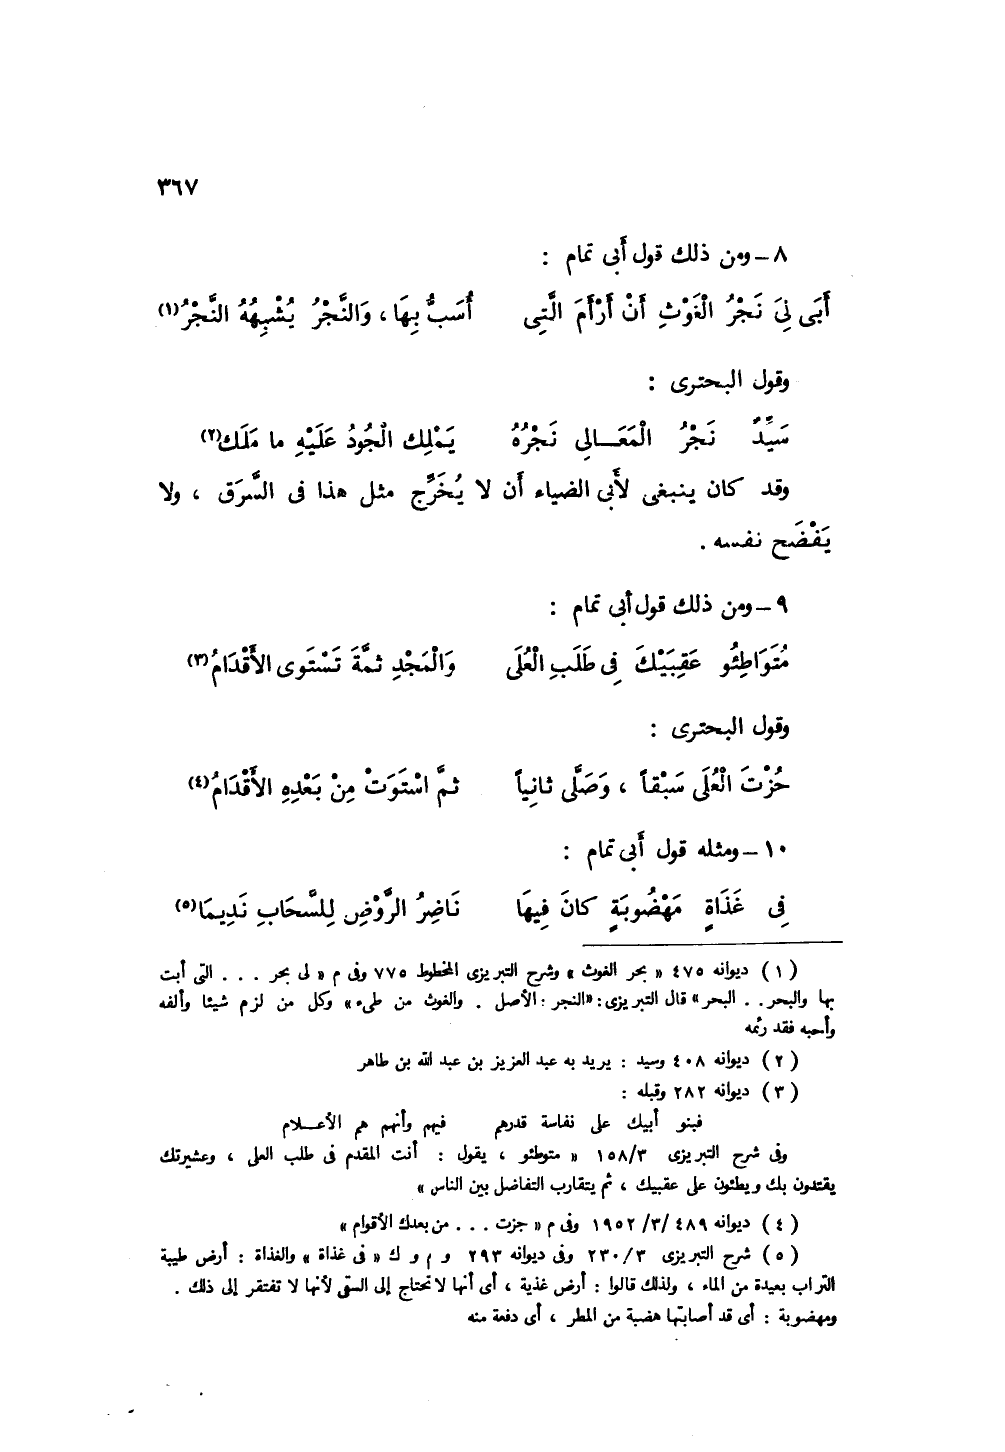 ٣٦٧
٨ – ومن ذلك قول أَبى تمام :
أَبَى لِىَ نَجْرُ الْغَوْثِ أَنْ أَرْأَمَ الَّتِى أُسَبُّ بِهَا ، وَالنَّجْرُ يُشْبِهُهُ النَّجْرُ(١)
وقول البحترى :
سَيِّدٌ نَجْرُ الْمَعَالِى نَجْرُهُ يَمْلِك الْجُودُ عَلَيْهِ ما مَلَك(٢)
وقد كان ينبغى لأَبى الضياء أَن لا يُخَرِّج مثل هذا فى السَّرَق ، ولا
يَفْضَح نفسه .
٩ – ومن ذلك قول أَبى تمام :
مُتَوَاطِئُو عَقِبَيْكَ فِى طَلَبِ الْعُلَى وَالْمَجْدِ ثمَّةَ تَسْتَوى الأَقْدَامُ(٣)
وقول البحترى :
حُزْتَ الْعُلَى سَبْقاً ، وَصَلَّى ثانِياً ثمَّ اسْتَوَتْ مِنْ بَعْدِهِ الأَقْدَامُ(٤)
١٠ – ومثله قول أَبى تمام :
فِى غَذَاةٍ مَهْضُوبَةٍ كانَ فِيهَا نَاضِرُ الرَّوْضِ لِلسَّحَابِ نَدِيمَا(٥)
(١) ديوانه ٤٧٥ « بحر الغوث » وشرح التبريزى المخطوط ٧٧٥ وفى م « لى بحر . . . التى أبت
بها والبحر . . البحر » قال التبريزى : « النجر : الأصل . والغوث من طىء » وكل من لزم شيئا وألفه
وأحبه فقد رئمه
(٢) ديوانه ٤٠٨ وسيد : يريد به عبد العزيز بن عبد الله بن طاهر
(٣) ديوانه ٢٨٢ وقبله :
فبنو أبيك على نفاسة قدرهم فيهم وأنهم هم الأعلام
وفى شرح التبريزى ١٥٨/٣ « متوطئو ، يقول : أنت المقدم فى طلب العلى ، وعشيرتك
يقتدون بك ويطئون على عقبيك ، ثم يتقارب التفاضل بين الناس »
(٤) ديوانه ٤٨٩ /٣/ ١٩٥٢ وفى م « جزت . . . من بعدك الأقوام »
(٥) شرح التبريزى ٢٣٠/٣ وفى ديوانه ٢٩٣ و م و ك « فى غذاة » والغذاة : أرض طيبة
التراب بعيدة من الماء ، ولذلك قالوا : أرض غذية ، أى أنها لا تحتاج إلى السقى لأنها لا تفتقر إلى ذلك .
ومهضوبة : أى قد أصابتها هضبة من المطر ، أى دفعة منه